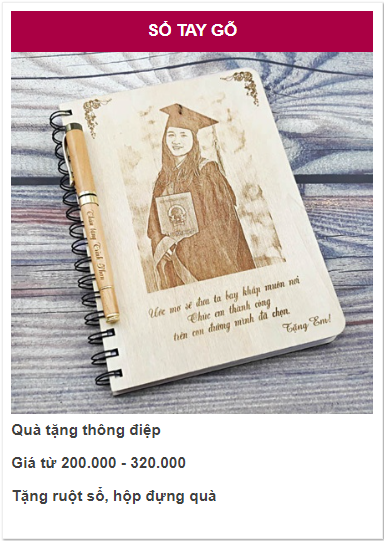 SỔ TAY GỖ
Ước mơ sẽ đưa ta bay khắp muôn nơi
Chúc em thành công
trên con đường mình đã chọn.
Tặng Em!
Quà tặng thông điệp
Giá từ 200.000 - 320.000
Tặng ruột sổ, hộp đựng quà